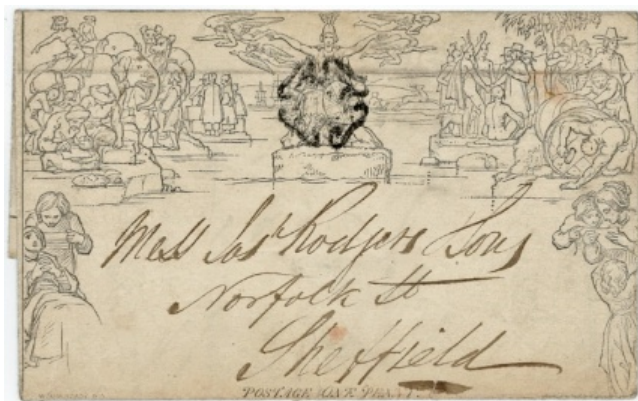 Mess Jos Rodgers & Sons
Norfolk St
Sheffield
POSTAGE ONE PENNY.